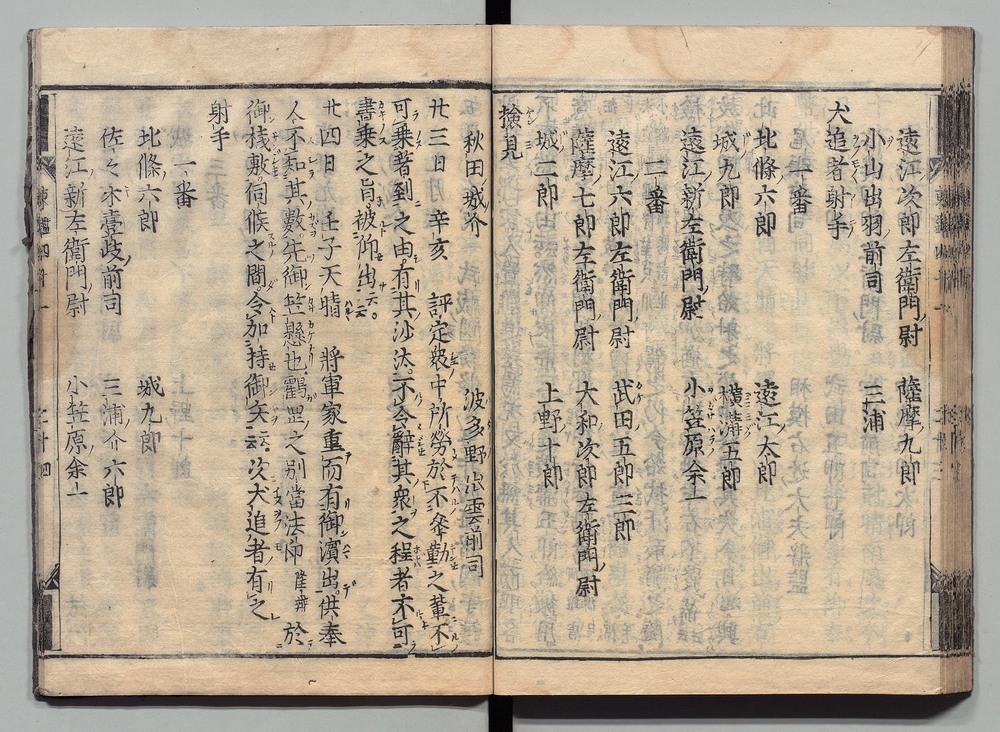 遠江次郎左衛門尉　薩摩九郎
小山出羽前司　三浦
犬追者射手
一番
北條六郎　遠江太郎
城九郎　横溝五郎
遠江新左衛門尉　小笠原余一
二番
遠江六郎左衛門尉　武田五郎三郎
薩摩七郎左衛門尉　大和次郎左衛門尉
城二郎　上野十郎
撿見
秋田城介　波多野出雲前司
廿三日 辛亥　評定衆中所勞於不参勤之輩不
可乗著到之由有其沙汰不令辭其衆之程者不可
書乗之旨被仰出云云
廿四日 壬子天晴　將軍家重而有御濱出供奉
人不知其數先御笠懸也鸖罡之別當法印隆弁於
御棧敷伺候之間令加持御矢云云次犬追者有之
射手
一番
北條六郎　城九郎
佐々木壹岐前司　三浦介六郎
遠江新左衛門尉　小笠原余一